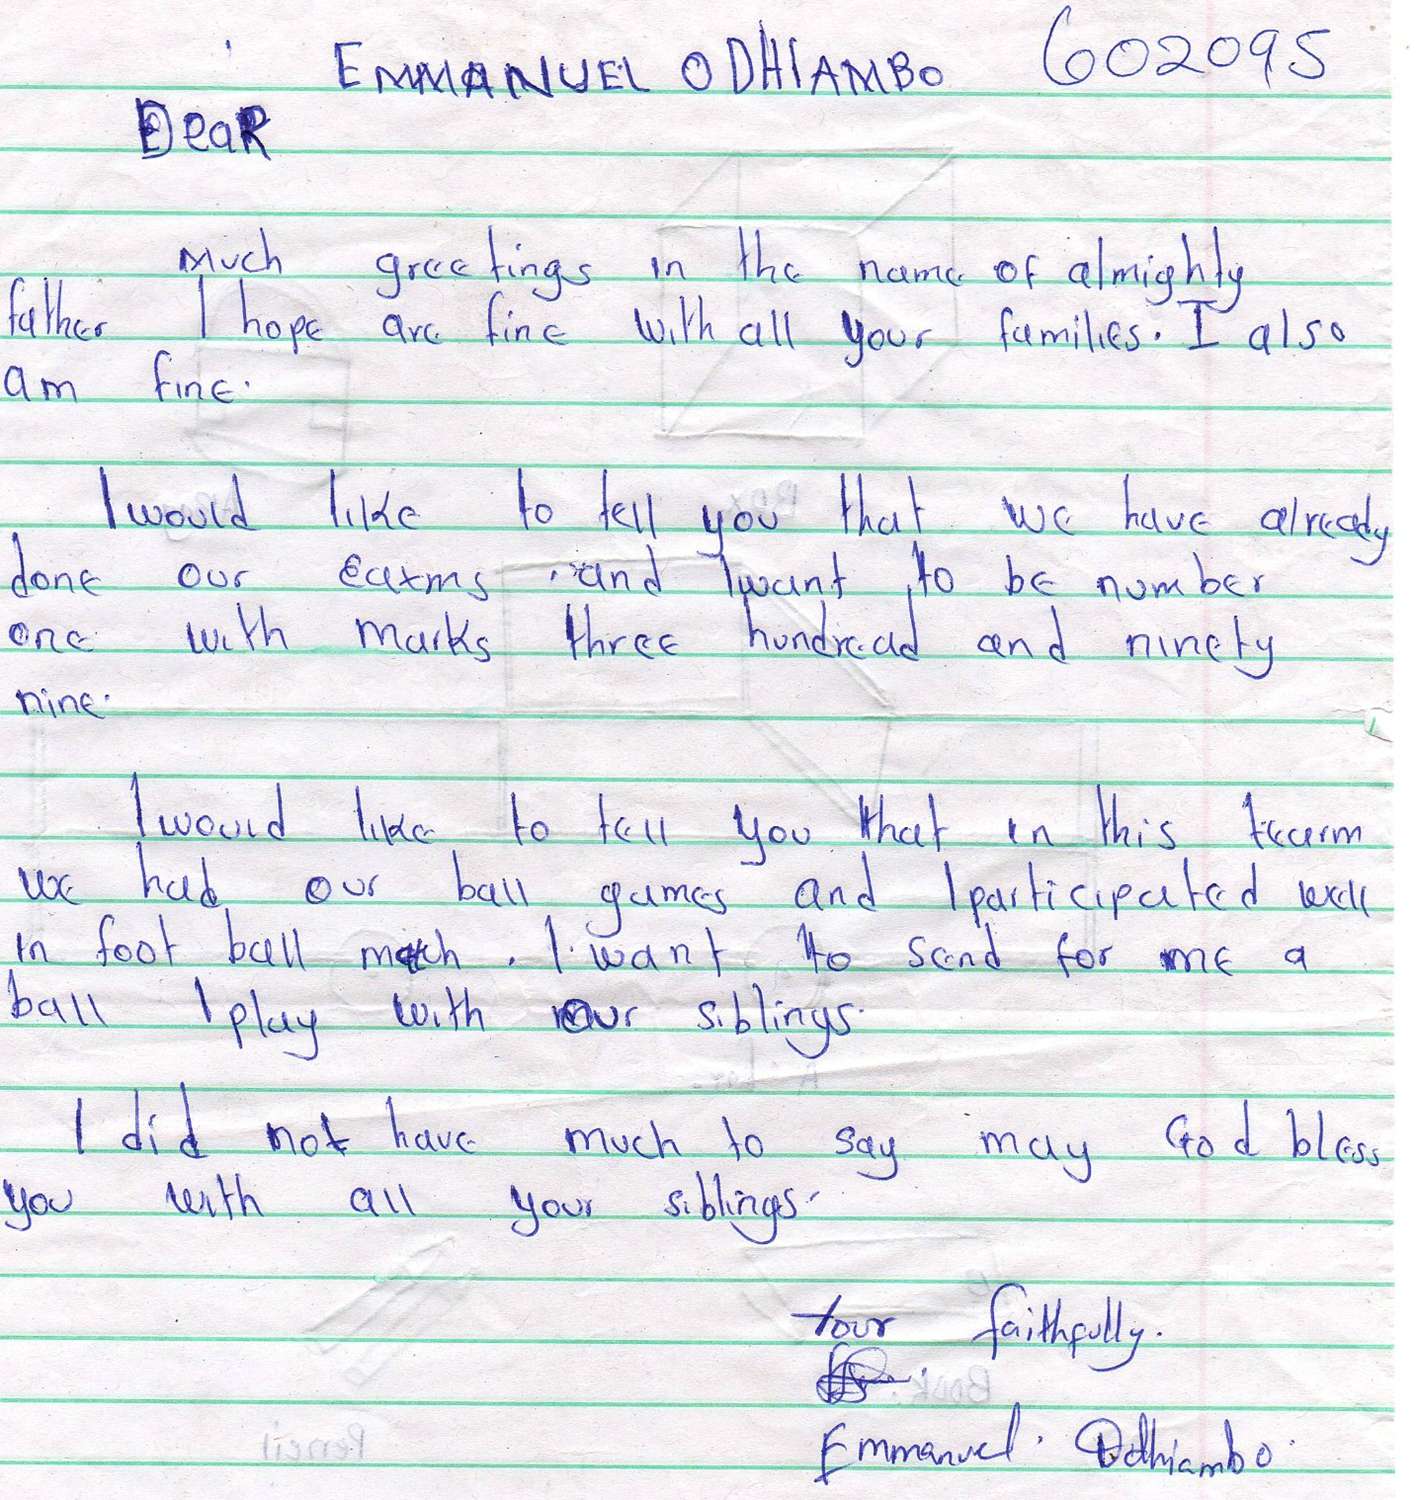 EMMANUEL ODHIAMBO 602095
Dear
Much greetings in the name of almighty
father I hope are fine with all your families. I also
am fine.
I would like to tell you that we have already
done our eaxms . and I want to be number
one with marks three hundread and ninety
nine.
I would like to tell you that in this tearm
we had our ball games and I participated well
in foot ball match . I want to send for me a
ball I play with our siblings.
I did not have much to say may God bless
you with all your siblings.
Your faithfully.
Emmanuel . Odhiambo.
Book.
Pencil